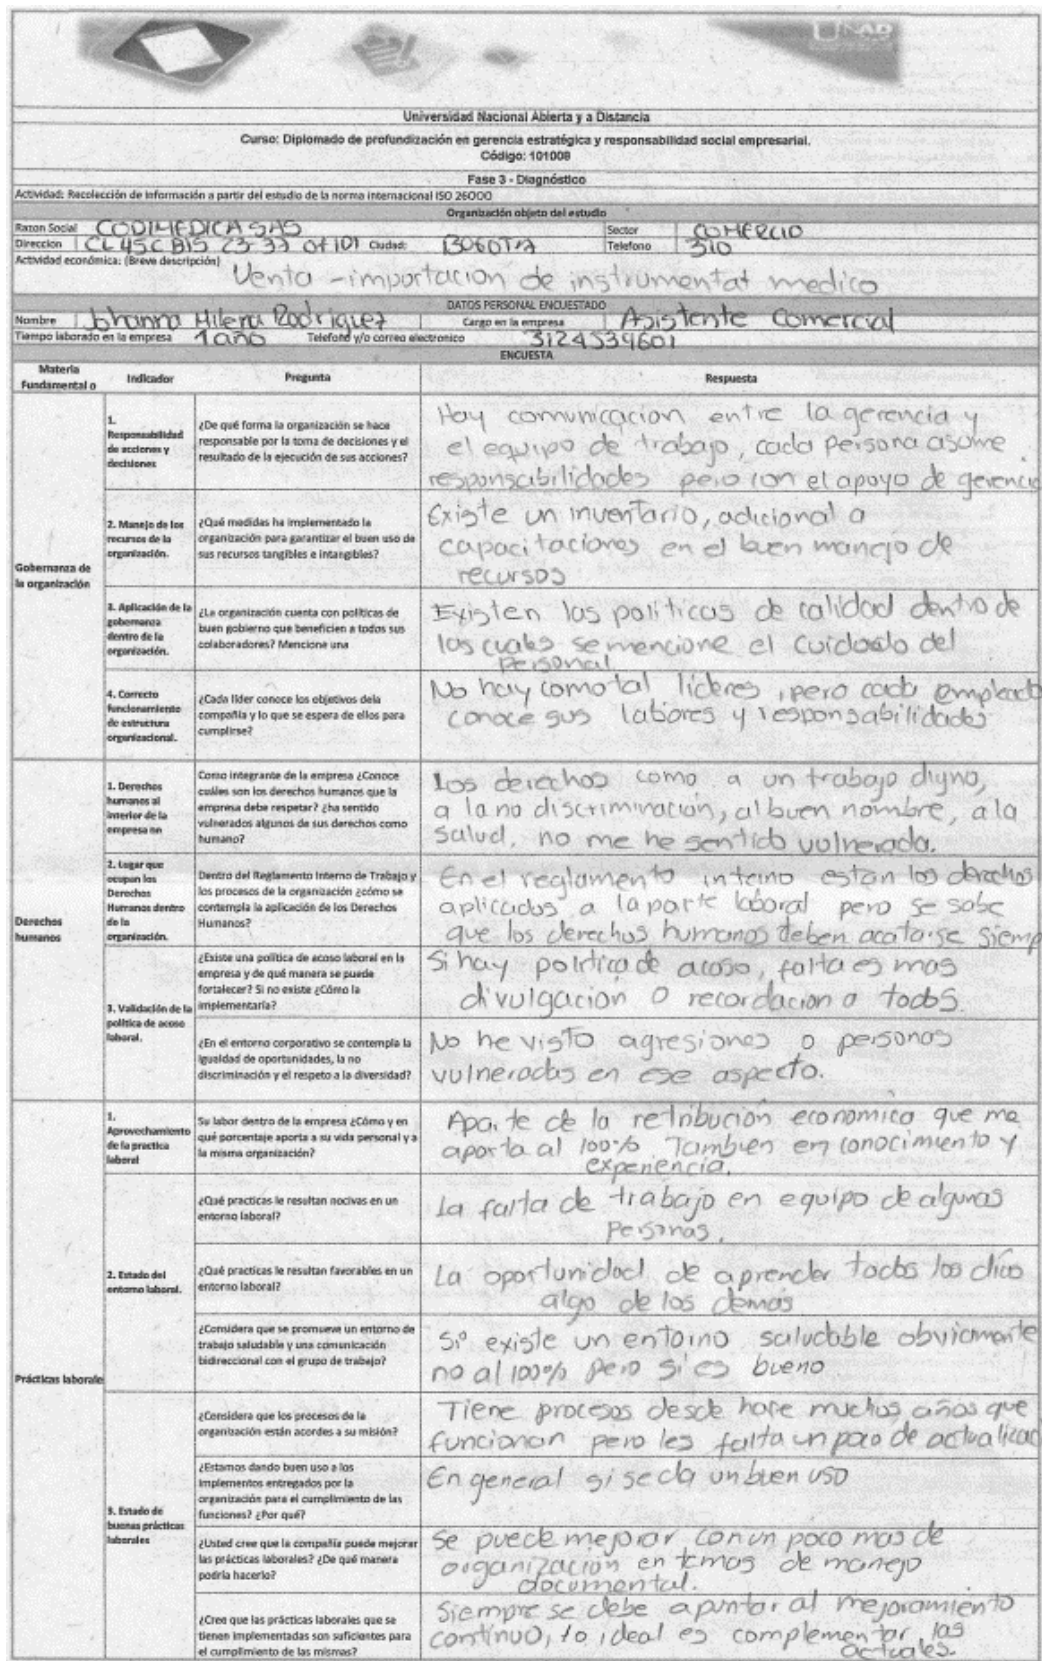 UNAD
Universidad Nacional Abierta y a Distancia
Curso: Diplomado de profundización en gerencia estratégica y responsabilidad social empresarial.
Código: 101008
Fase 3 - Diagnóstico
Actividad: Recolección de información a partir del estudio de la norma internacional ISO 26000
Organización objeto del estudio
Razon Social CODIMEDICA SAS Sector COMERCIO
Direccion CL 45C BIS 23-37 of 101 Ciudad: BOGOTA Telefono 310
Actividad económica: (Breve descripción)
Venta - importacion de instrumental medico
DATOS PERSONAL ENCUESTADO
Nombre Johanna Milena Rodriguez Cargo en la empresa Asistente Comercial
Tiempo laborado en la empresa 1 año Telefono y/o correo electronico 3124539601
ENCUESTA
Materia Fundamental o
Indicador
Pregunta
Respuesta
Gobernanza de
la organización
1.
Responsabilidad
de acciones y
decisiones
¿De qué forma la organización se hace
responsable por la toma de decisiones y el
resultado de la ejecución de sus acciones?
Hay comunicacion entre la gerencia y
el equipo de trabajo, cada persona asume
responsabilidades pero con el apoyo de gerencia
2. Manejo de los
recursos de la
organización.
¿Qué medidas ha implementado la
organización para garantizar el buen uso de
sus recursos tangibles e intangibles?
Existe un inventario, adicional a
capacitaciones en el buen manejo de
recursos
3. Aplicación de la
gobernanza
dentro de la
organización.
¿La organización cuenta con políticas de
buen gobierno que beneficien a todos sus
colaboradores? Mencione una
Existen las politicas de calidad dentro de
las cuales se mencione el cuidado del
personal
4. Correcto
funcionamiento
de estructura
organizacional.
¿Cada líder conoce los objetivos dela
compañía y lo que se espera de ellos para
cumplirse?
No hay como tal lideres, pero cada empleado
conoce sus labores y responsabilidades
Derechos
humanos
1. Derechos
humanos al
interior de la
empresa en
Como integrante de la empresa ¿Conoce
cuáles son los derechos humanos que la
empresa debe respetar? ¿ha sentido
vulnerados algunos de sus derechos como
humano?
Los derechos como a un trabajo digno,
a la no discriminación, al buen nombre, a la
salud, no me he sentido vulnerada.
2. Lugar que
ocupan los
Derechos
Humanos dentro
de la
organización.
Dentro del Reglamento Interno de Trabajo y
los procesos de la organización ¿cómo se
contempla la aplicación de los Derechos
Humanos?
En el reglamento interno estan los derechos
aplicados a la parte laboral pero se sabe
que los derechos humanos deben acatarse siemp
3. Validación de la
política de acoso
laboral.
¿Existe una política de acoso laboral en la
empresa y de qué manera se puede
fortalecer? Si no existe ¿Cómo la
implementaría?
Si hay politica de acoso, falta es mas
divulgacion o recordacion a todos.
¿En el entorno corporativo se contempla la
igualdad de oportunidades, la no
discriminación y el respeto a la diversidad?
No he visto agresiones o personas
vulneradas en ese aspecto.
Prácticas laborale
1.
Aprovechamiento
de la practica
laboral
Su labor dentro de la empresa ¿Cómo y en
qué porcentaje aporta a su vida personal y a
la misma organización?
Aparte de la retribución economica que me
aporta al 100% Tambien en conocimiento y
experiencia.
2. Estado del
entorno laboral.
¿Qué practicas le resultan nocivas en un
entorno laboral?
La falta de trabajo en equipo de algunas
personas.
¿Qué practicas le resultan favorables en un
entorno laboral?
La oportunidad de aprender todos los dias
algo de los demás
¿Considera que se promueve un entorno de
trabajo saludable y una comunicación
bidireccional con el grupo de trabajo?
Si existe un entorno saludable obviamente
no al 100% pero si es bueno
3. Estado de
buenas prácticas
laborales
¿Considera que los procesos de la
organización están acordes a su misión?
Tiene procesos desde hace muchos años que
funcionan pero les falta un poco de actualizac
¿Estamos dando buen uso a los
implementos entregados por la
organización para el cumplimiento de las
funciones? ¿Por qué?
En general si se da un buen uso
¿Usted cree que la compañía puede mejorar
las prácticas laborales? ¿De qué manera
podría hacerlo?
Se puede mejorar con un poco mas de
organización en temas de manejo
documental.
¿Cree que las prácticas laborales que se
tienen implementadas son suficientes para
el cumplimiento de las mismas?
Siempre se debe apuntar al mejoramiento
continuo, lo ideal es complementar las
actuales.